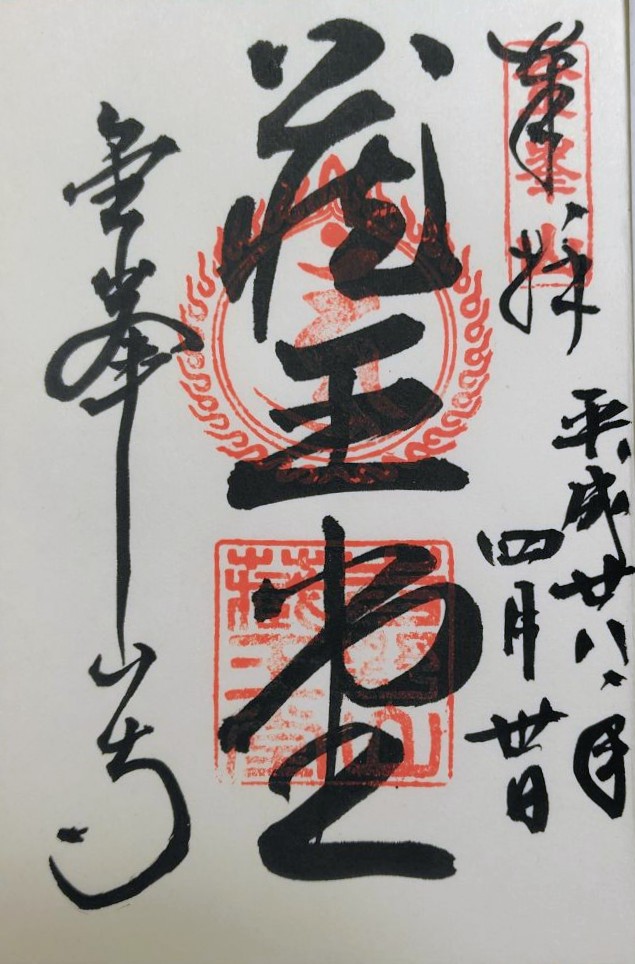 奉拝
金峯山
平成廿八年
四月卅日
蔵王堂
金峯山寺